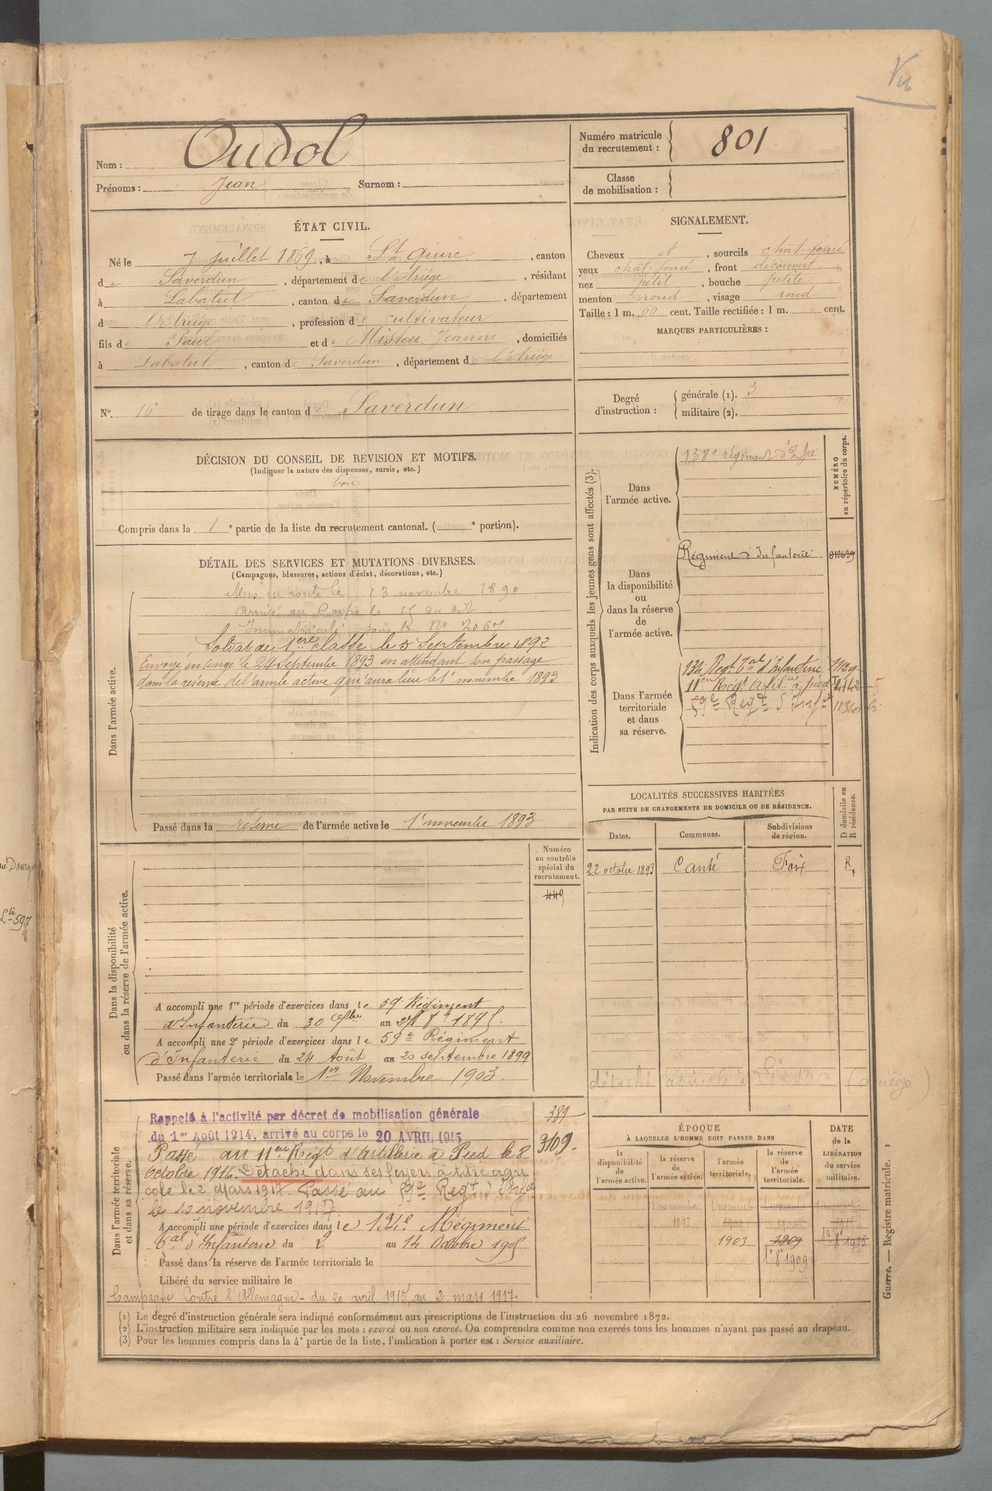 Vu
Nom : Oudol
Prénoms : Jean Surnom :
Numéro matricule
du recrutement : 801
Classe
de mobilisation :
ÉTAT CIVIL.
Né le 7 juillet 1869, à St Quirc, canton
de Saverdun, département de l'Ariège, résidant
à Labatut, canton de Saverdun, département
d l'Ariège, profession de cultivateur
fils de Paul et de Jeanne, domiciliés
à Labatut, canton de Saverdun, département de l'Ariège
No 16 de tirage dans le canton de Saverdun
SIGNALEMENT.
Cheveux et, sourcils chat-foncé
yeux chat-foncé, front découvert
nez petit, bouche petite
menton rond, visage
Taille : 1 m. 60 cent. Taille rectifiée : 1 m. cent.
MARQUES PARTICULIÈRES :
Degré
d'instruction :
générale (1). 3
militaire (2).
DÉCISION DU CONSEIL DE REVISION ET MOTIFS.
(Indiquer la nature des dispenses, sursis, etc.)
bon
Compris dans la 1e partie de la liste du recrutement cantonal. ( e portion).
DÉTAIL DES SERVICES ET MUTATIONS DIVERSES.
(Campagnes, blessures, actions d'éclat, décorations, etc.)
Dans l'armée active.
Mis en route le 13 novembre 1890
Arrivé au Corps le 15 du dit
Immatriculé sous le No
Soldat de 1ère classe le 5 Septembre 1892
Envoyé en congé le 24 septembre 1893 en attendant son passage
dans la réserve de l'armée active qui aura lieu le 1er novembre 1893
Passé dans la réserve de l'armée active le 1er novembre 1893
Indication des corps auxquels les jeunes gens sont affectés (3).
NUMÉRO
au répertoire du corps.
Dans
l'armée active.
138e régiment d'Infrie
Dans
la disponibilité
ou
dans la réserve
de
l'armée active.
Régiment d'Infanterie
Dans l'armée
territoriale
et dans
sa réserve.
134e Regt Tal d'Infanterie
11e Regt Artie à pied
59e Regt d'Infie
LOCALITÉS SUCCESSIVES HABITÉES
PAR SUITE DE CHANGEMENTS DE DOMICILE OU DE RÉSIDENCE.
Dates. Communes. Subdivisions
de région.
D domicile ou
R résidence.
22 octobre 1893 Canté Foix R.
détaché agricole à (Ariège)
Dans la disponibilité
ou dans la réserve de l'armée active.
Numéro
au contrôle
spécial du
recrutement.
449
A accompli une 1re période d'exercices dans le 59 Régiment
d'Infanterie du 30 au 1895.
A accompli une 2e période d'exercices dans le 59e Régiment
d'Infanterie du 24 Août au 20 septembre 1899
Passé dans l'armée territoriale le 1er Novembre 1903.
Dans l'armée territoriale
et dans sa réserve.
Rappelé à l'activité par décret de mobilisation générale
du 1er Août 1914, arrivé au corps le 20 AVRIL 1915
389
3109.
Passé au 11e Regt d'Artillerie à Pied le 8
octobre 1916. Détaché dans ses foyers à titre agri
cole le 2 Mars 1917. Passé au 59e Regt d'Infie
le 10 novembre 1917
A accompli une période d'exercices dans le 134e Régiment
Tal d'Infanterie du 2 au 14 Octobre 1905
Passé dans la réserve de l'armée territoriale le
Libéré du service militaire le
Campagne Contre l'Allemagne - du 20 avril 1915 au 2 mars 1917.
ÉPOQUE
À LAQUELLE L'HOMME DOIT PASSER DANS
la
disponibilité
de
l'armée active.
la réserve
de
l'armée active.
l'armée
territoriale.
la réserve
de
l'armée
territoriale.
DATE
de la
LIBÉRATION
du service
militaire.
1893 1903 1909
1903
1er 8e 1909
Guerre. — Registre matricule. 1
(1) Le degré d'instruction générale sera indiqué conformément aux prescriptions de l'instruction du 26 novembre 1872.
(2) L'instruction militaire sera indiquée par les mots : exercé ou non exercé. On comprendra comme non exercés tous les hommes n'ayant pas passé au drapeau.
(3) Pour les hommes compris dans la 4e partie de la liste, l'indication à porter est : Service auxiliaire.